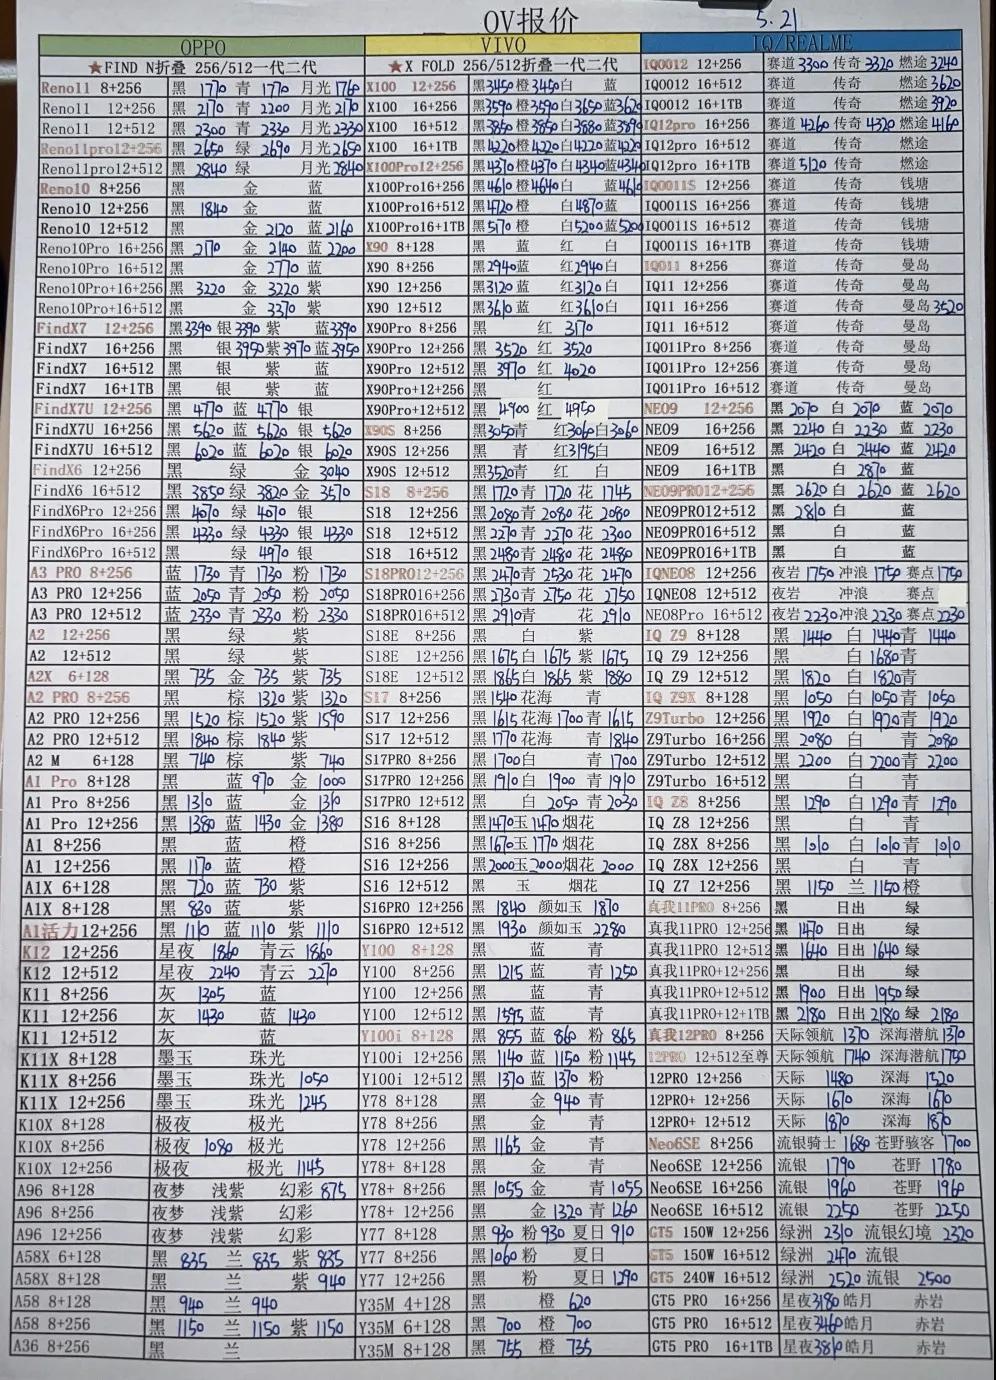 OV报价 5.21
OPPO VIVO IQ/REALME
★FIND N折叠 256/512一代二代 ★X FOLD 256/512折叠一代二代 IQ0012 12+256 赛道3300 传奇3320 燃途3240
Reno11 8+256 黑 1770 青 1770 月光1760 X100 12+256 黑3450橙3450白 蓝 IQ0012 16+512 赛道 传奇 燃途3620
Reno11 12+256 黑 2170 青 2200 月光2170 X100 16+256 黑3590橙3590白3650蓝3620 IQ0012 16+1TB 赛道 传奇 燃途3920
Reno11 12+512 黑 2300 青 2330 月光2330 X100 16+512 黑3850橙3850白3880蓝3890 IQ12pro 16+256 赛道4260 传奇4320 燃途4160
Reno11pro12+256 黑 2650 绿 2690 月光2650 X100 16+1TB 黑4220橙4220白4220蓝4220 IQ12pro 16+512 赛道 传奇 燃途
Reno11pro12+512 黑 2840 绿 月光2840 X100Pro12+256 黑4370橙4370白4340蓝4340 IQ12pro 16+1TB 赛道5120 传奇 燃途
Reno10 8+256 黑 金 蓝 X100Pro16+256 黑4610橙4640白 蓝4610 IQ0011S 12+256 赛道 传奇 钱塘
Reno10 12+256 黑 1840 金 蓝 X100Pro16+512 黑4720橙 白4870蓝 IQ0011S 16+256 赛道 传奇 钱塘
Reno10 12+512 黑 金 2120 蓝2160 X100Pro16+1TB 黑5170橙 白5200蓝5200 IQ0011S 16+512 赛道 传奇 钱塘
Reno10Pro 16+256 黑 2170 金 2140 蓝2200 X90 8+128 黑 蓝 红 白 IQ0011S 16+1TB 赛道 传奇 钱塘
Reno10Pro 16+512 黑 金 2770 蓝 X90 8+256 黑2940蓝 红2940白 IQ011 8+256 赛道 传奇 曼岛
Reno10Pro+16+256 黑 3220 金 3220 紫 X90 12+256 黑3120蓝 红3120白 IQ11 12+256 赛道 传奇 曼岛
Reno10Pro+16+512 黑 金 3370 紫 X90 12+512 黑3610蓝 红3610白 IQ11 16+256 赛道 传奇 曼岛3520
FindX7 12+256 黑3390 银3390 紫 蓝3390 X90Pro 8+256 黑 红 3170 IQ11 16+512 赛道 传奇 曼岛
FindX7 16+256 黑 银3950紫3970蓝3950 X90Pro 12+256 黑 3520 红 3520 IQ011Pro 8+256 赛道 传奇 曼岛
FindX7 16+512 黑 银 紫 蓝 X90Pro+12+256 黑 3970 红 4020 IQ011Pro 12+256 赛道 传奇 曼岛
FindX7 16+1TB 黑 银 紫 蓝 X90Pro+12+256 黑 红 IQ011Pro 16+512 赛道 传奇 曼岛
FindX7U 12+256 黑 4770 蓝 4770 银 X90Pro+12+512 黑 4900 红 4950 NE09 12+256 黑 2070 白 2070 蓝 2070
FindX7U 16+256 黑 5620 蓝 5620 银 5620 X90S 8+256 黑3050青 红3060白3060 NE09 16+256 黑 2240 白 2230 蓝 2230
FindX7U 16+512 黑 6020 蓝 6020 银 6020 X90S 12+256 黑 青 红3195白 NE09 16+512 黑 2420 白 2440 蓝 2420
FindX6 12+256 黑 绿 金 3040 X90S 12+512 黑3520青 红 白 NE09 16+1TB 黑 白 2870 蓝
FindX6 16+512 黑 3850 绿 3820 金 3570 S18 8+256 黑1720青 1720 花 1745 NE09PRO12+256 黑 2620 白 2620 蓝 2620
FindX6Pro 12+256 黑 4070 绿 4070 银 S18 12+256 黑2080青 2080 花 2080 NE09PRO12+512 黑 2810 白 蓝
FindX6Pro 16+256 黑 4330 绿 4330 银 4330 S18 12+512 黑2270青 2270 花 2300 NE09PRO16+512 黑 白 蓝
FindX6Pro 16+512 黑 绿 4970 银 S18 16+512 黑2480青 2480 花 2480 NE09PRO16+1TB 黑 白 蓝
A3 PRO 8+256 蓝 1730 青 1730 粉 1730 S18PRO12+256 黑2470青 2530 花 2470 IQNEO8 12+256 夜岩 1750 冲浪 1750 赛点1750
A3 PRO 12+256 蓝 2050 青 2050 粉 2050 S18PRO16+256 黑2730青 2750 花 2750 IQNEO8 12+512 夜岩 冲浪 赛点
A3 PRO 12+512 蓝 2330 青 2330 粉 2330 S18PRO16+512 黑2910青 花 2910 NEO8Pro 16+512 夜岩 2230冲浪 2230 赛点2230
A2 12+256 黑 绿 紫 S18E 8+256 黑 白 紫 IQ Z9 8+128 黑 1440 白 1440青 1440
A2 12+512 黑 绿 紫 S18E 12+256 黑1675白 1675 紫 1675 IQ Z9 12+256 黑 白 1680青
A2X 6+128 黑 735 金 735 紫 735 S18E 12+512 黑1865白 1865 紫 1880 IQ Z9 12+512 黑 1820 白 1820青
A2 PRO 8+256 黑 棕 1320 紫 1320 S17 8+256 黑1540花海 青 IQ Z9X 8+128 黑 1050 白 1050 青 1050
A2 PRO 12+256 黑 1520 棕 1520 紫 1590 S17 12+256 黑1615花海 1700 青 1615 Z9Turbo 12+256 黑 1920 白 1920青 1920
A2 PRO 12+512 黑 1840 棕 1840 紫 S17 12+512 黑1770花海 青 1840 Z9Turbo 16+256 黑 2080 白 青 2080
A2 M 6+128 黑 740 棕 紫 740 S17PRO 8+256 黑1700白 青 1700 Z9Turbo 12+512 黑 2200 白 2200青 2200
A1 Pro 8+128 黑 蓝 970 金 1000 S17PRO 12+256 黑1910白 1900 青 1910 Z9Turbo 16+512 黑 白 青
A1 Pro 8+256 黑 1310 蓝 金 1310 S17PRO 12+512 黑 白 2050 青 2030 IQ Z8 8+256 黑 1290 白 1290 青 1290
A1 Pro 12+256 黑 1380 蓝 1430 金 1380 S16 8+128 黑1470玉 1470 烟花 IQ Z8 12+256 黑 白 青
A1 8+256 黑 蓝 橙 S16 8+256 黑1670玉 1770 烟花 IQ Z8X 8+256 黑 1010 白 1010青 1010
A1 12+256 黑 1170 蓝 橙 S16 12+256 黑2000玉2000烟花 2000 IQ Z8X 12+256 黑 白 青
A1X 6+128 黑 720 蓝 730 紫 S16 12+512 黑 玉 烟花 IQ Z7 12+256 黑 1150 兰 1150 橙
A1X 8+128 黑 830 蓝 紫 S16PRO 12+256 黑 1840 颜如玉 1870 真我11PRO 8+256 黑 日出 绿
A1活力12+256 黑 1110 蓝 1110 紫 1110 S16PRO 12+512 黑 1930 颜如玉 2280 真我11PRO 12+256 黑 1470 日出 绿
K12 12+256 星夜 1860 青云 1860 Y100 8+128 黑 蓝 青 真我11PRO 12+512 黑 1640 日出 1640 绿
K12 12+512 星夜 2240 青云 2270 Y100 8+256 黑 1215 蓝 青 1250 真我11PRO+12+256 黑 日出 绿
K11 8+256 灰 1305 蓝 Y100 12+256 黑 蓝 青 真我11PRO+12+512 黑 1900 日出 1950 绿
K11 12+256 灰 1430 蓝 1430 Y100 12+512 黑 1595 蓝 青 真我11PRO+12+1TB 黑 2180 日出 2180 绿 2180
K11 12+512 灰 蓝 Y100i 8+128 黑 855 蓝 860 粉 865 真我12PRO 8+256 天际领航 1370 深海潜航1370
K11X 8+128 墨玉 珠光 Y100i 12+256 黑 1140 蓝 1150 粉1145 12PRO 12+512至尊 天际领航 1740 深海潜航1750
K11X 8+256 墨玉 珠光 1050 Y100i 12+512 黑 1370 蓝 1370 粉 12PRO 12+256 天际 1480 深海 1520
K11X 12+256 墨玉 珠光 1245 Y78 8+128 黑 金 940 青 12PRO+ 12+256 天际 1670 深海 1670
K10X 8+128 极夜 极光 Y78 8+256 黑 金 青 12PRO+ 12+512 天际 1870 深海 1870
K10X 8+256 极夜 1080 极光 Y78 12+256 黑 1165 金 青 Neo6SE 8+256 流银骑士 1680 苍野骇客 1700
K10X 12+256 极夜 极光 1145 Y78+ 8+128 黑 金 青 Neo6SE 12+256 流银 1790 苍野 1780
A96 8+128 夜梦 浅紫 幻彩 875 Y78+ 8+256 黑 1055 金 青 1055 Neo6SE 16+256 流银 1960 苍野 1960
A96 8+256 夜梦 浅紫 幻彩 Y78+ 12+256 黑 金 1320 青 1260 Neo6SE 16+512 流银 2250 苍野 2250
A96 12+256 夜梦 浅紫 幻彩 Y77 8+128 黑 930 粉 930 夏日 910 GT5 150W 12+256 绿洲 2310 流银幻境 2320
A58X 6+128 黑 835 兰 835 紫 835 Y77 8+256 黑1060粉 夏日 GT5 150W 16+512 绿洲 2470 流银
A58X 8+128 黑 兰 紫 940 Y77 12+256 黑 粉 夏日 1290 GT5 240W 16+512 绿洲 2520 流银 2500
A58 8+128 黑 940 兰 940 Y35M 4+128 黑 橙 620 GT5 PRO 16+256 星夜3180 皓月 赤岩
A58 8+256 黑 1150 兰 1150 紫 1150 Y35M 6+128 黑 700 橙 700 GT5 PRO 16+512 星夜3460皓月 赤岩
A36 8+256 黑 兰 Y35M 8+128 黑 755 橙 735 GT5 PRO 16+1TB 星夜3810皓月 赤岩